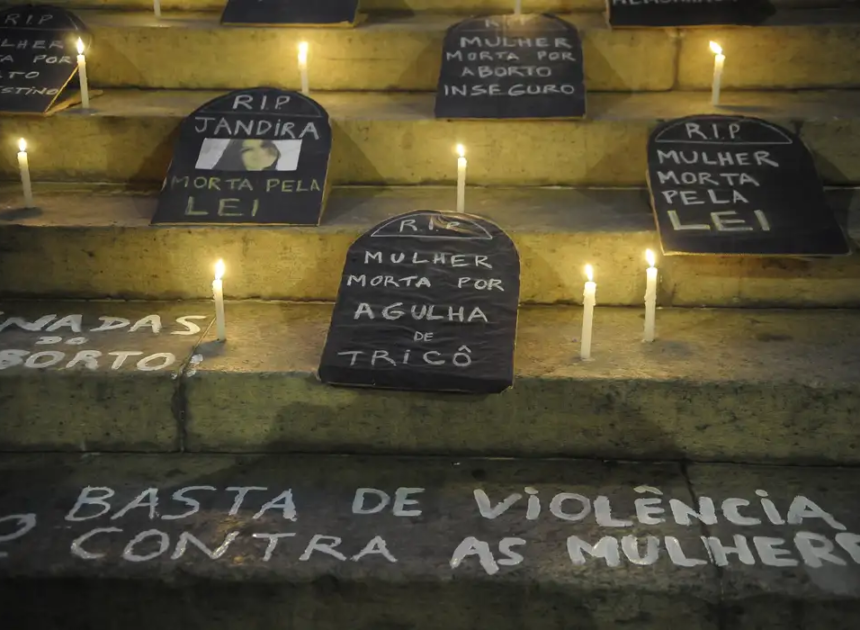 RIP
LHER
POR
TO
RIP
MULHER
MORTA POR
ABORTO
INSEGURO
R.I.P
JANDIRA
MORTA PELA
LEI
R.I.P
MULHER
MORTA
PELA
LEI
R.I.P
MULHER
MORTA POR
AGULHA
DE
TRICÔ
NADAS
DO
BORTO!
BASTA DE VIOLÊNCIA
CONTRA AS MULHERE